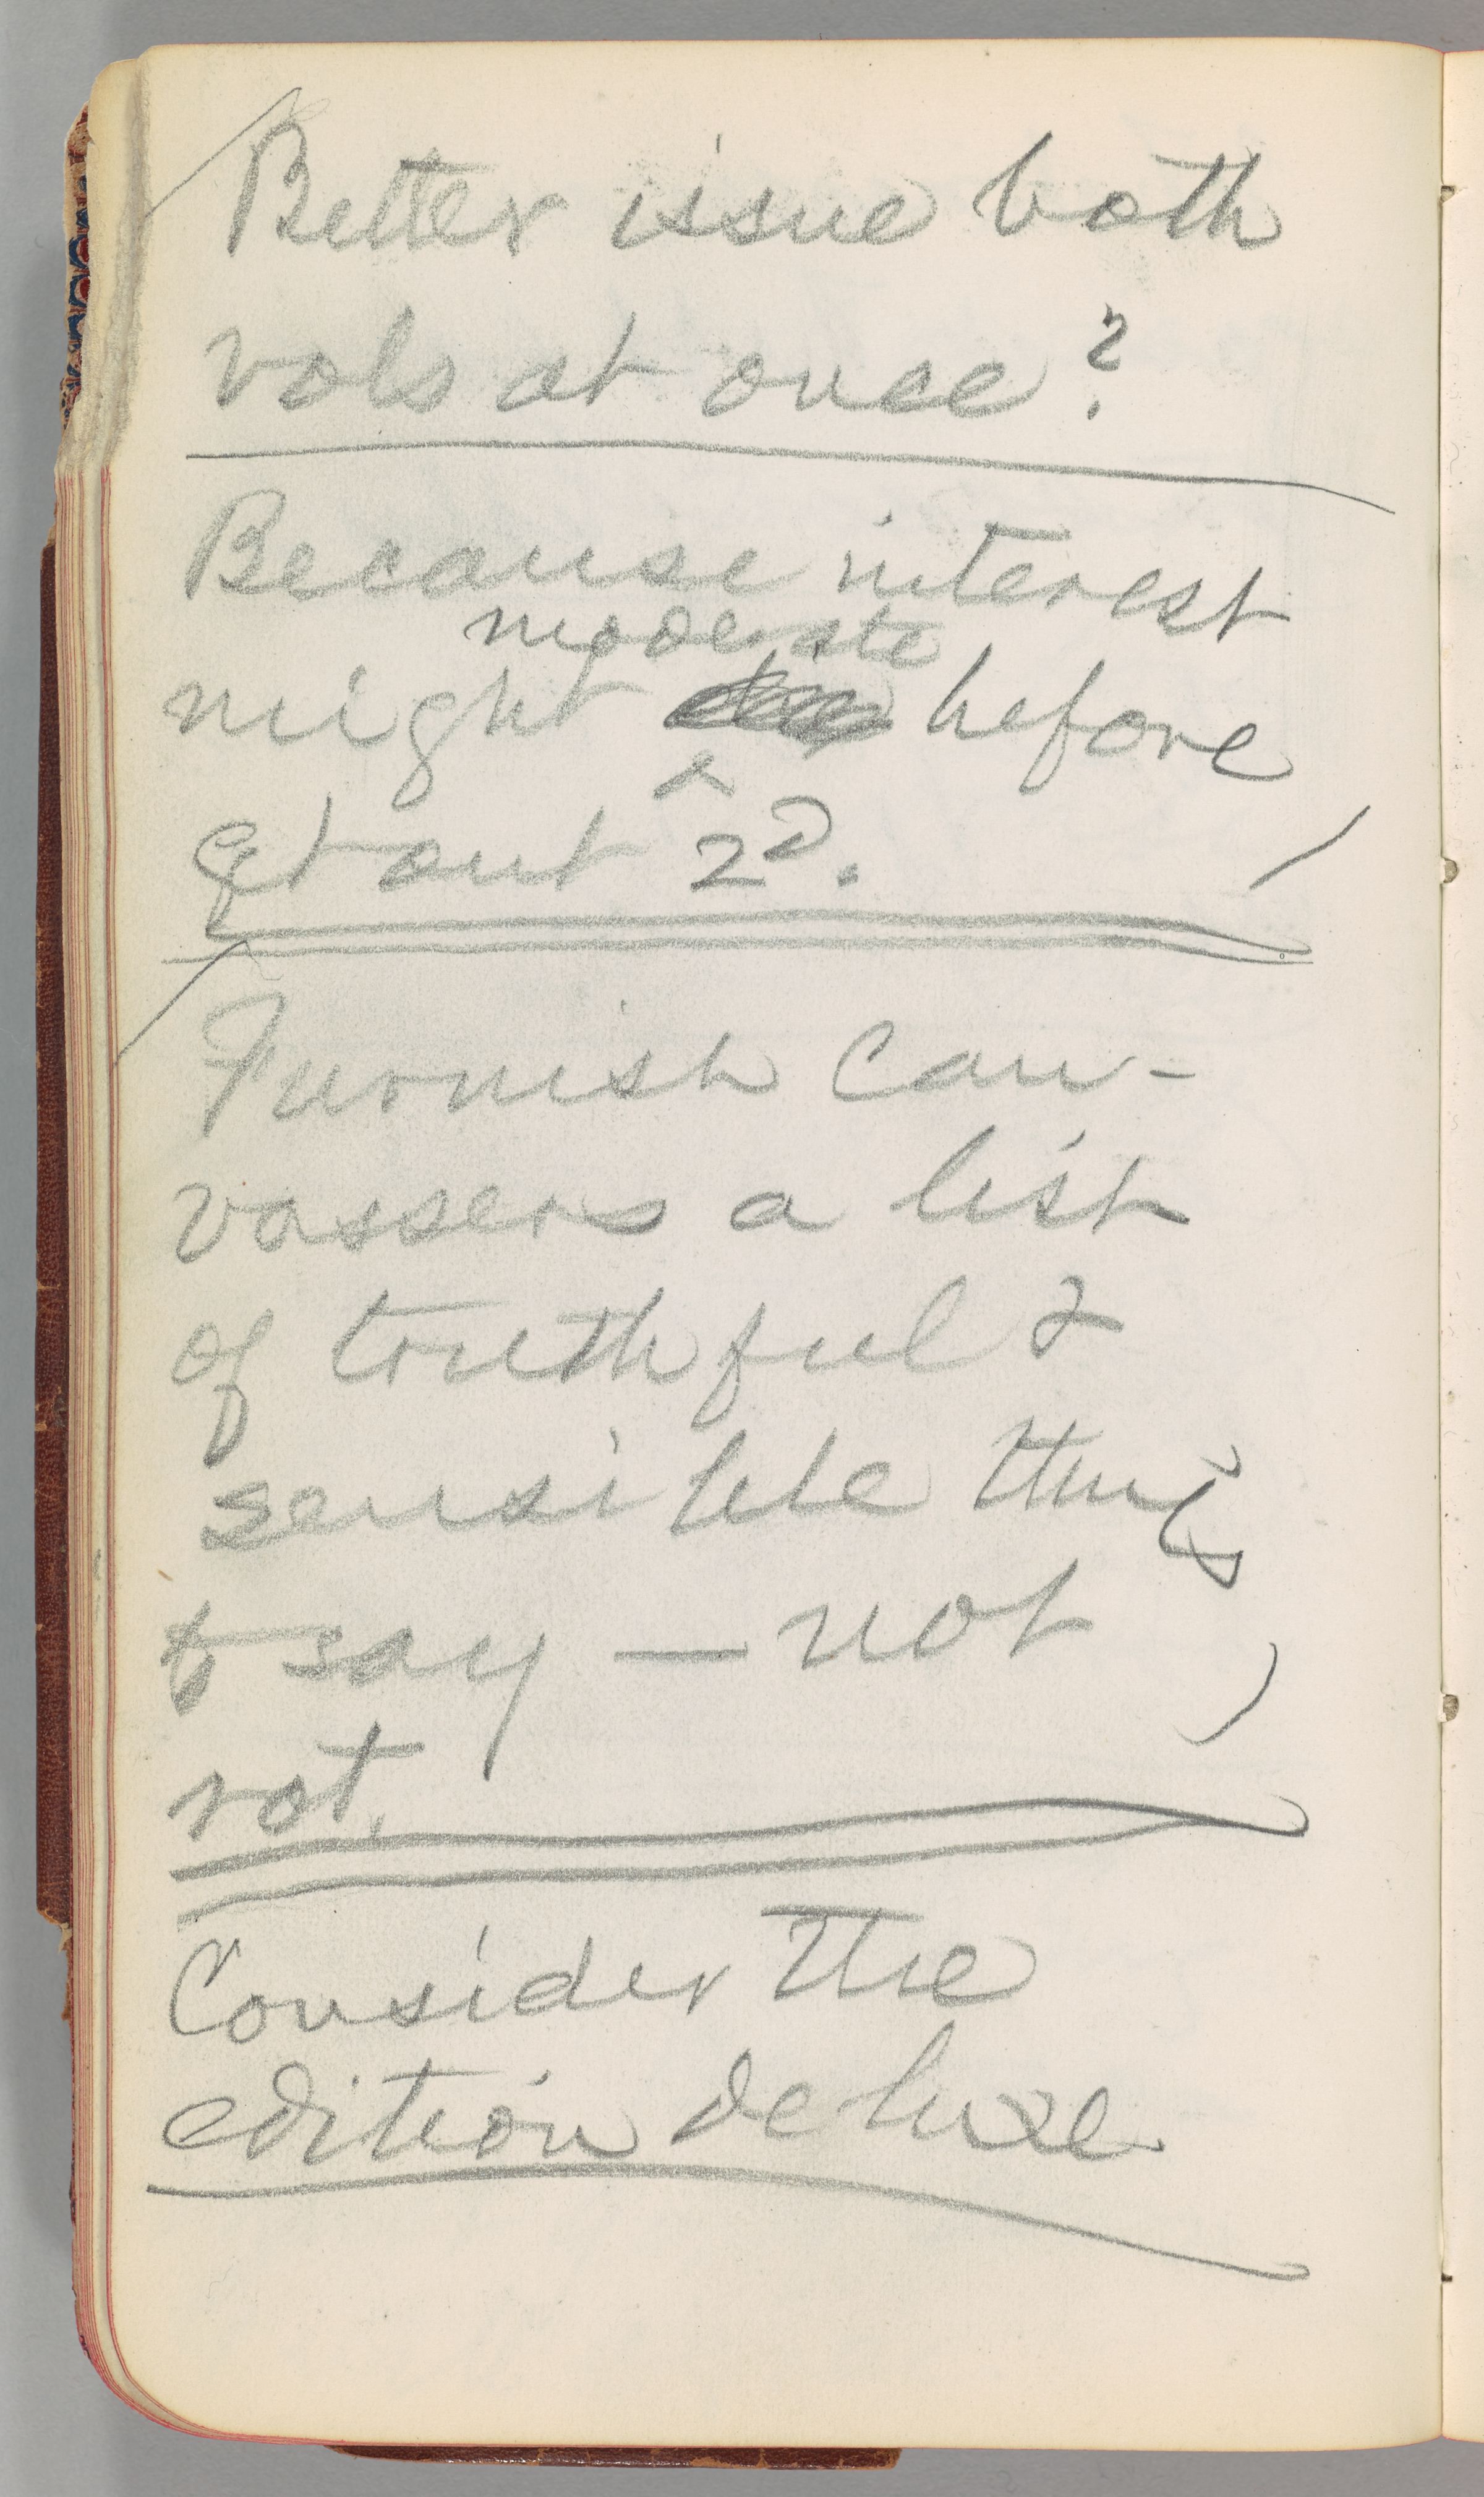 Better issue both
vols at once?
Because interest
moderate
might before
get out 2d.
Furnish can-
vassers a list
of truthful &
sensible things
to say — not
rot.
Consider the
edition de luxe